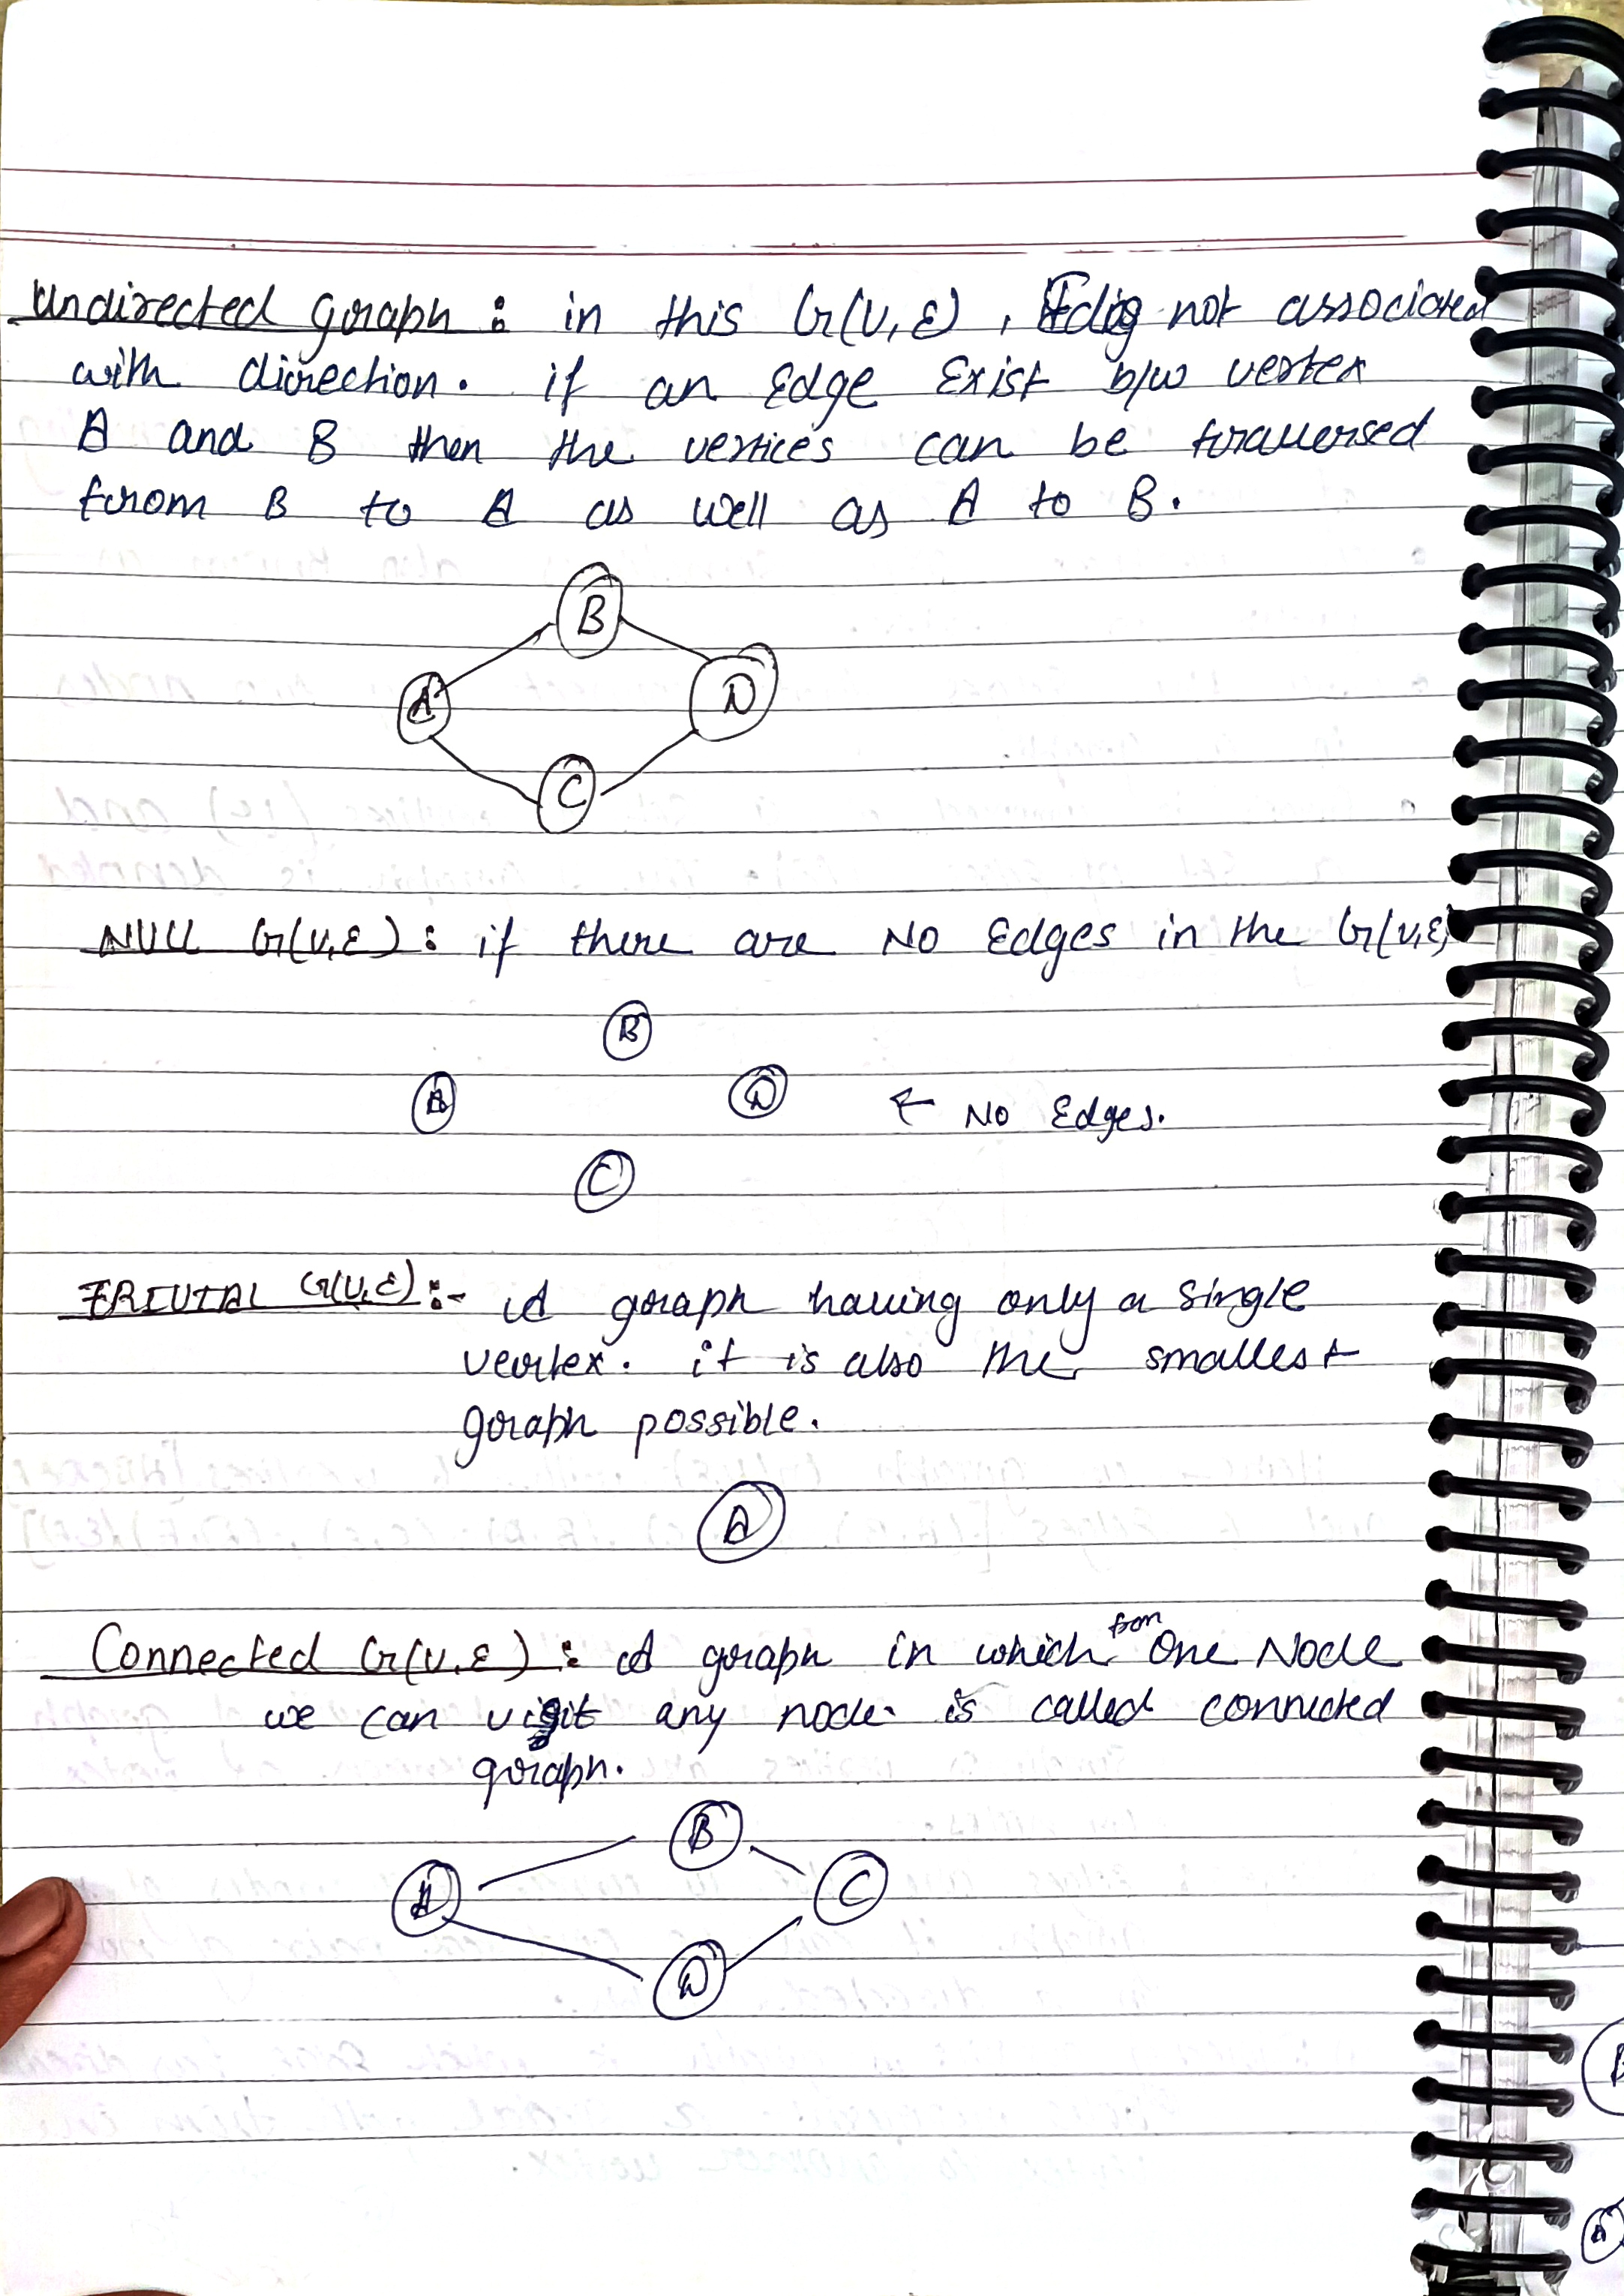 Undirected graph : in this G(V,E), Edge not associated
with direction. if an Edge Exist b/w vertex
A and B then the vertices can be traversed
from B to A as well as A to B.
B
A
D
C
NULL G(V,E) : if there are NO Edges in the G(V,E)
B
A
D
← NO Edges.
C
TRIVIAL G(V,E) :- A graph having only a single
vertex. it is also the smallest
graph possible.
A
Connected G(V,E) : A graph in which from One Node
we can visit any node is called connected
graph.
B
A
C
D